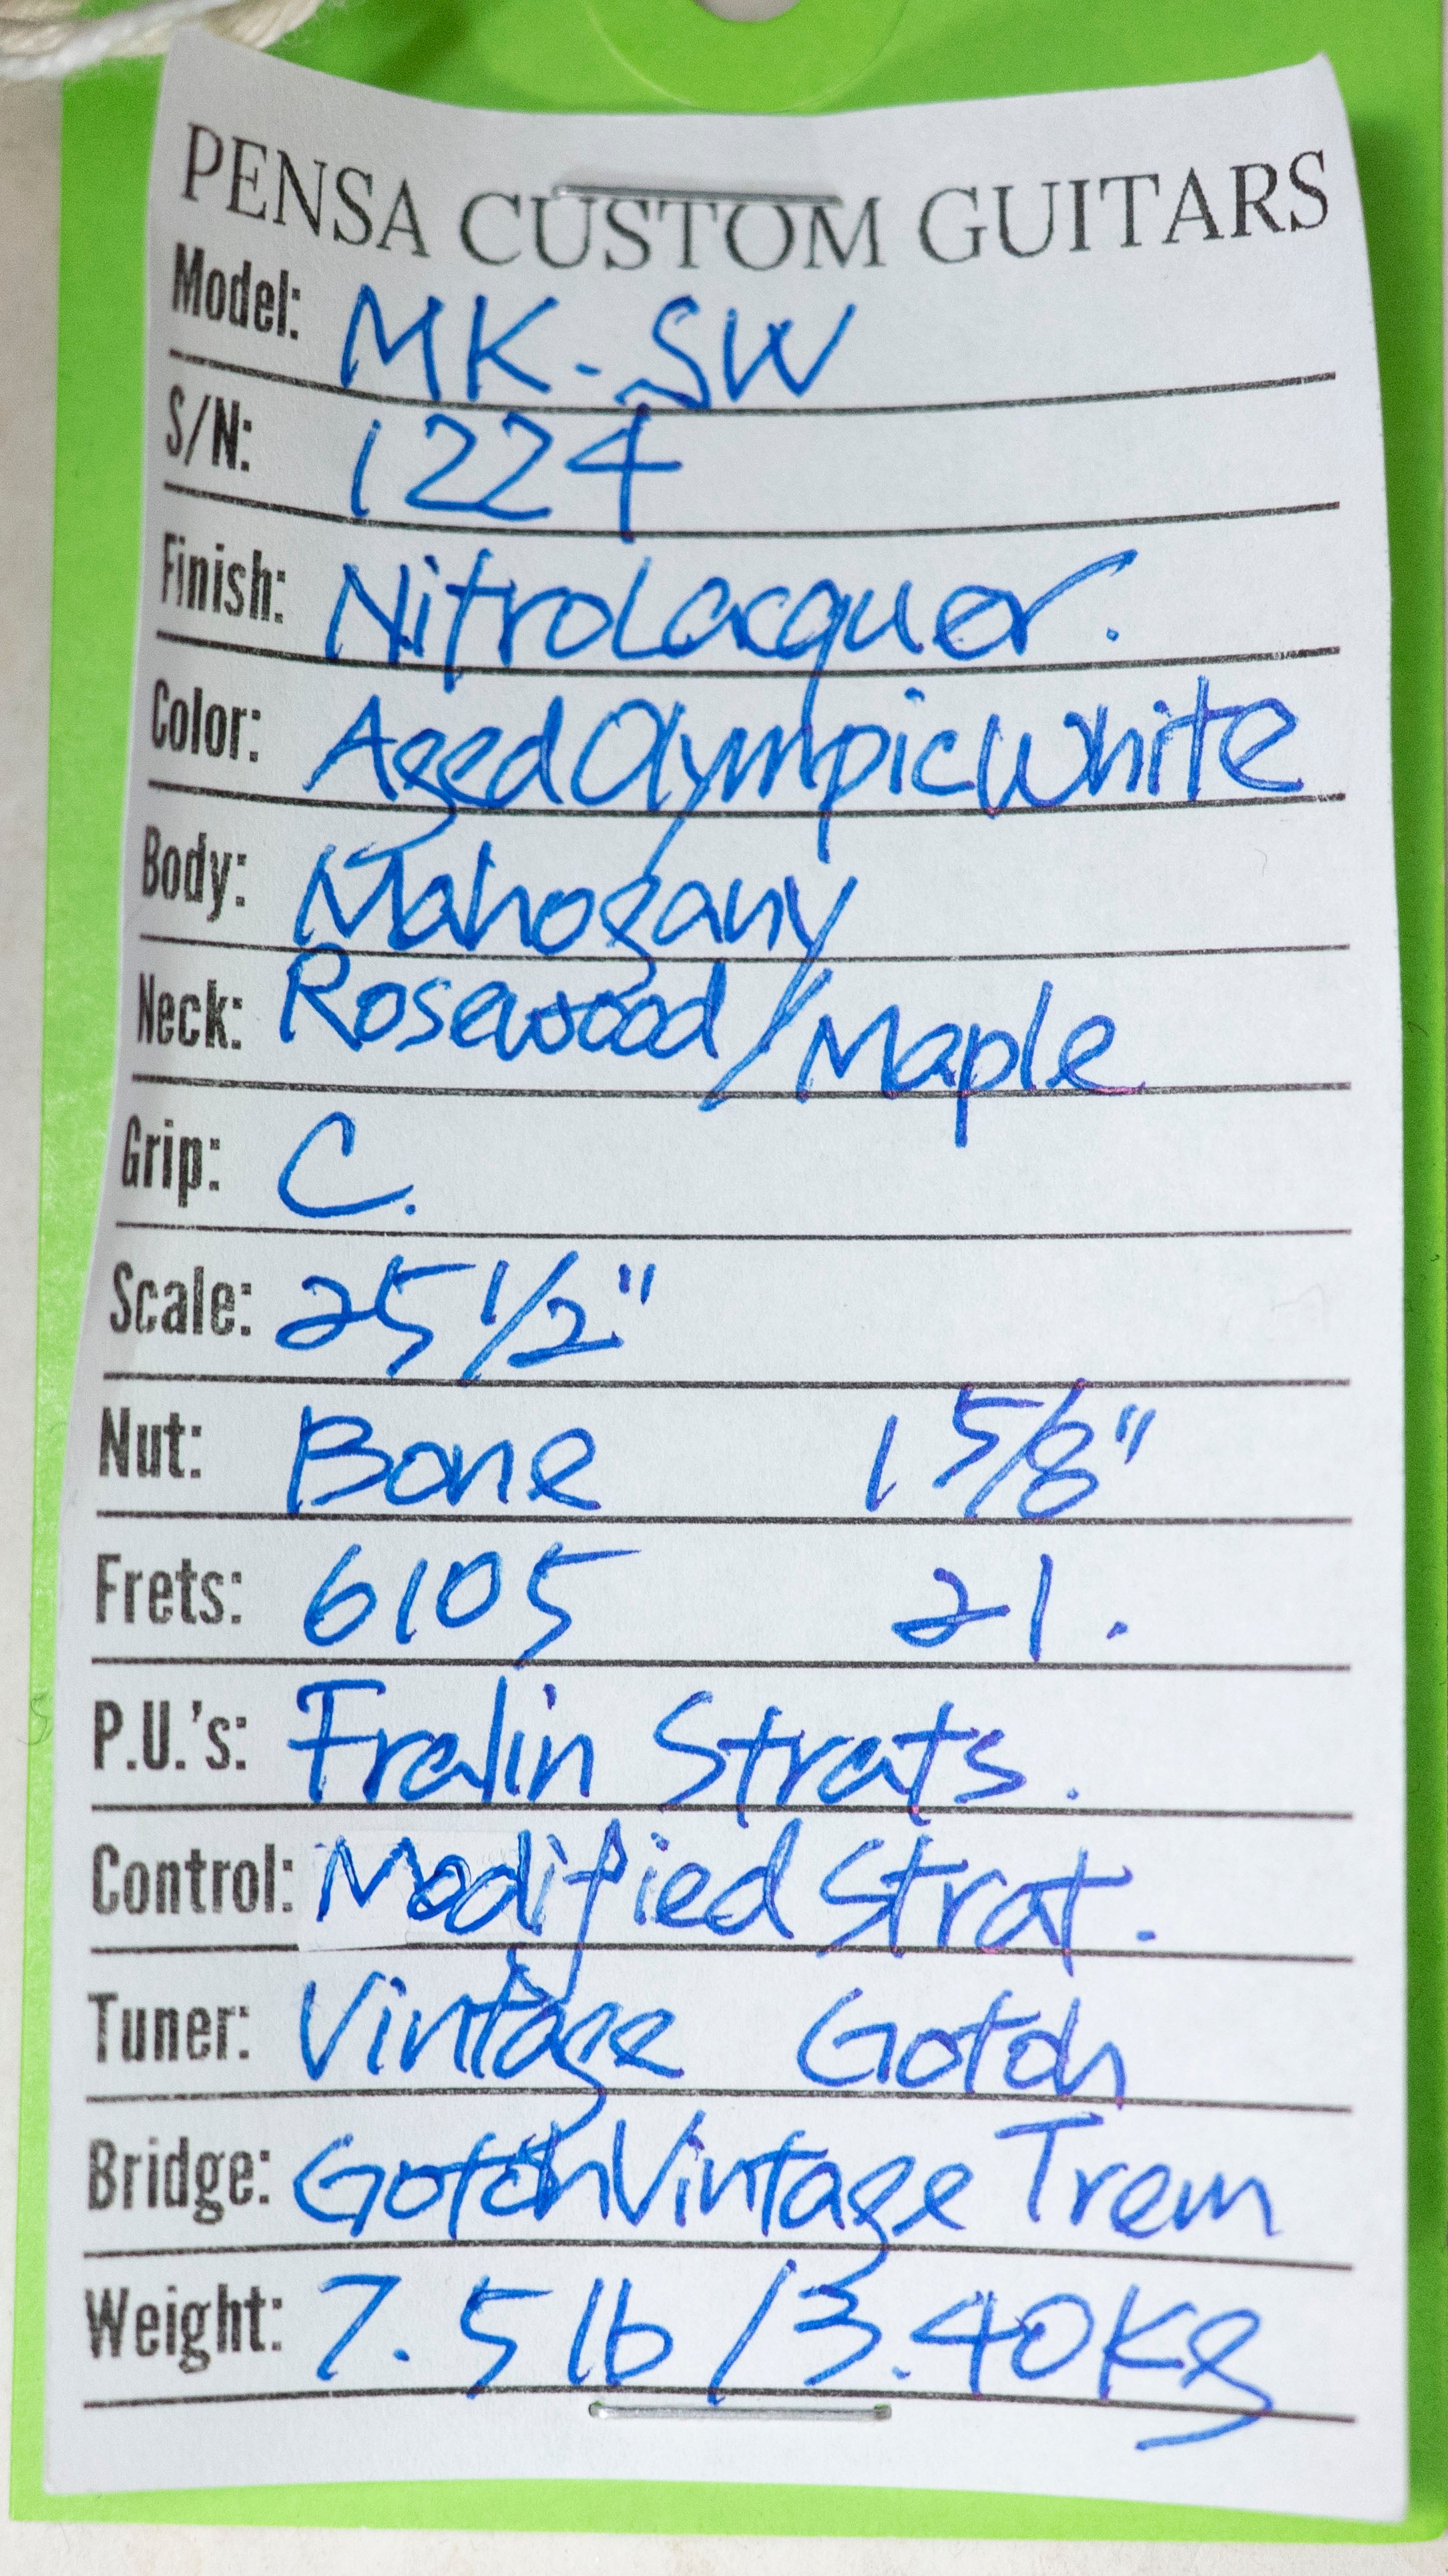 PENSA CUSTOM GUITARS
Model: MK-SW
S/N: 1224
Finish: NitroLacquer.
Color: Aged Olympic White
Body: Mahogany
Neck: Rosewood/Maple
Grip: C.
Scale: 25 1/2"
Nut: Bone 1 5/8"
Frets: 6105 21.
P.U.'s: Fralin Strats.
Control: Modified Strat.
Tuner: Vintage Gotoh
Bridge: Gotoh Vintage Trem
Weight: 7.5 lb / 3.40Kg